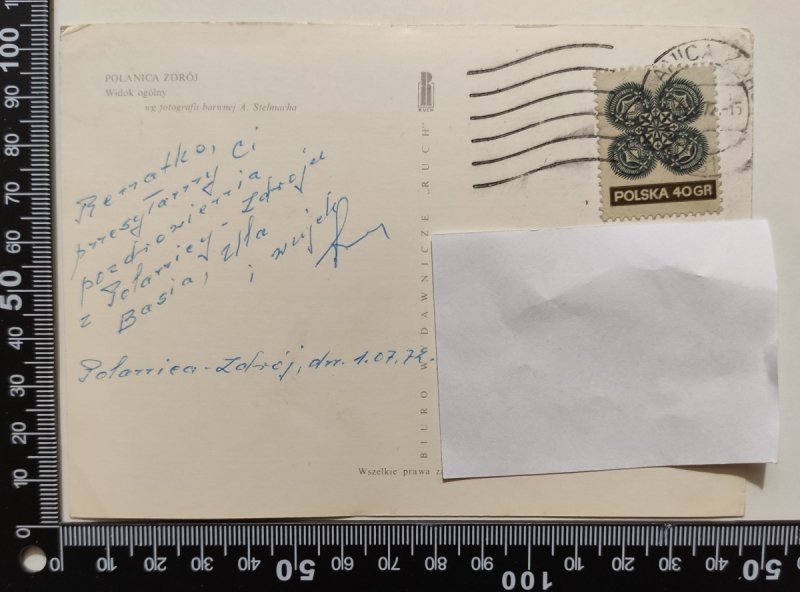 POLANICA ZDRÓJ
Widok ogólny
wg fotografii barwnej A. Stelmacha
RUCH
POLSKA 40 GR
Renatko, ci
przesyłamy
pozdrowienia
z Polanicy-Zdroju
Basia, Ula
i wujek
Polanica-Zdrój, dn. 1.07.72.
BIURO WYDAWNICZE „RUCH”
Wszelkie prawa
0 10 20 30 40 50 60 70 80 90 100
0 10 20 30 40 50 60 70 80 90 100 10 20 30 40